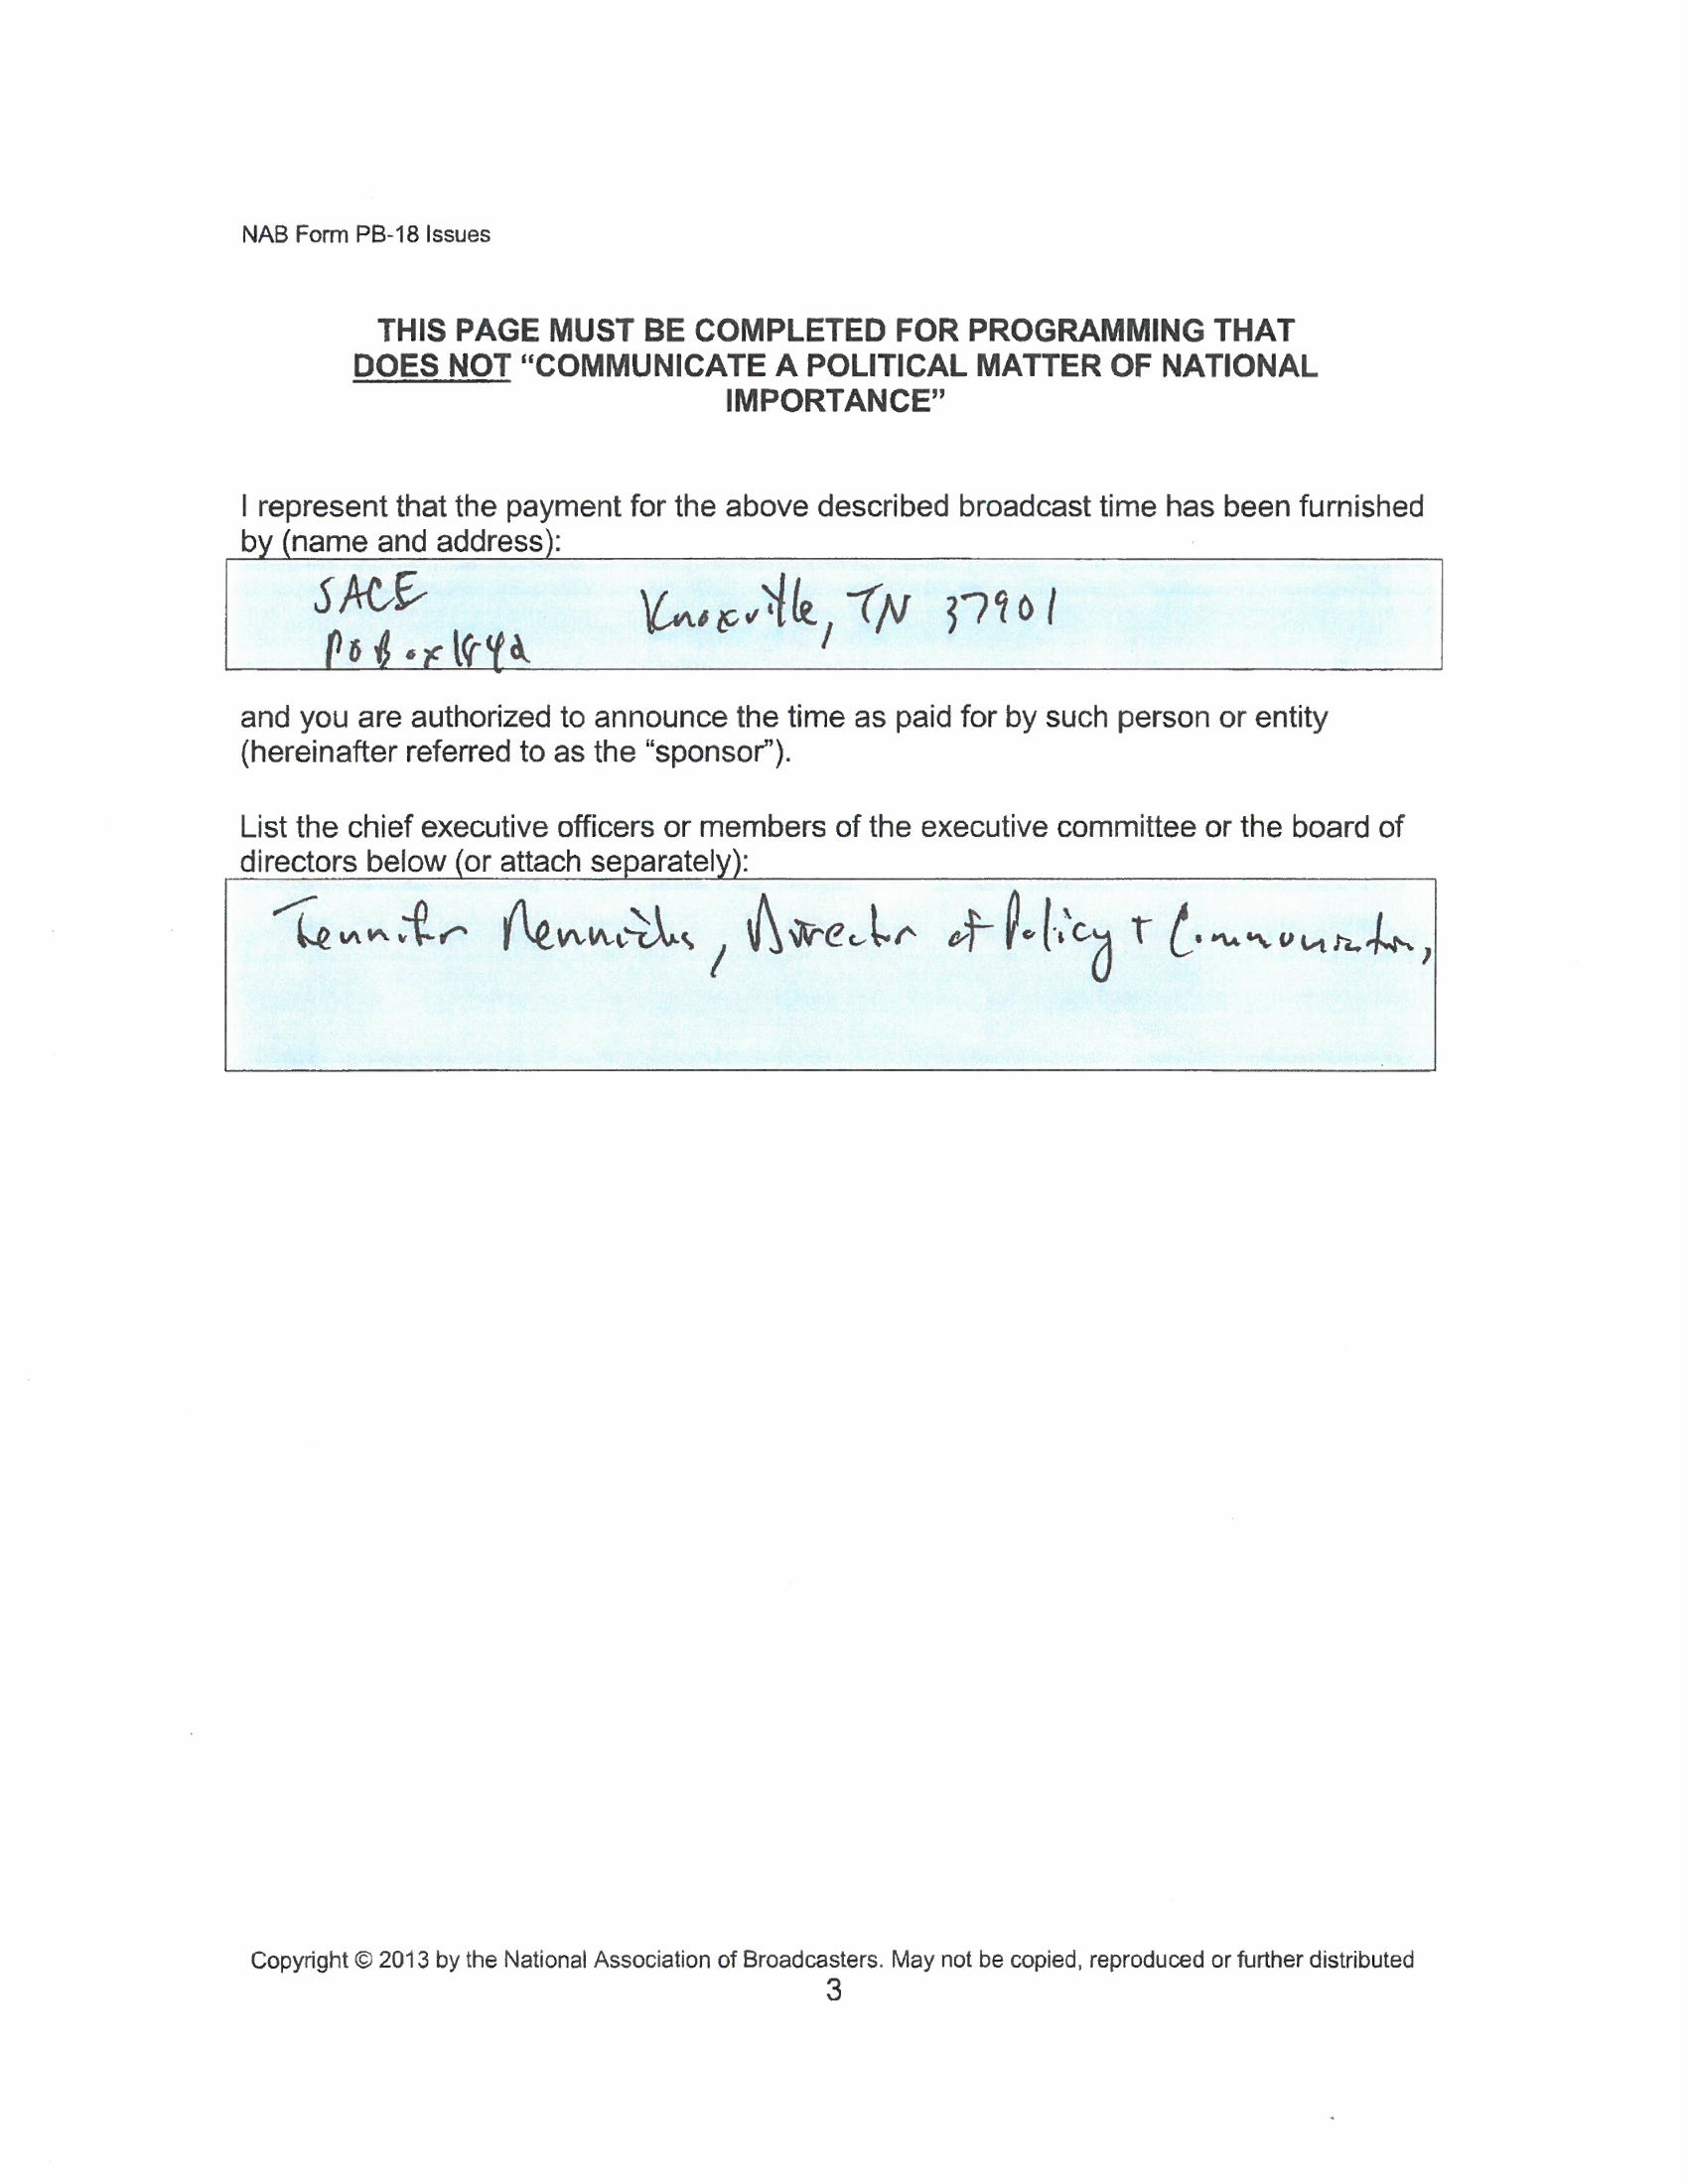 NAB Form PB-18 Issues
THIS PAGE MUST BE COMPLETED FOR PROGRAMMING THAT
DOES NOT “COMMUNICATE A POLITICAL MATTER OF NATIONAL
IMPORTANCE”
I represent that the payment for the above described broadcast time has been furnished
by (name and address):
SACE
PO Box 1842
Knoxville, TN 37901
and you are authorized to announce the time as paid for by such person or entity
(hereinafter referred to as the “sponsor”).
List the chief executive officers or members of the executive committee or the board of
directors below (or attach separately):
Jennifer Rennicks, Director of Policy + Communication,
Copyright © 2013 by the National Association of Broadcasters. May not be copied, reproduced or further distributed
3